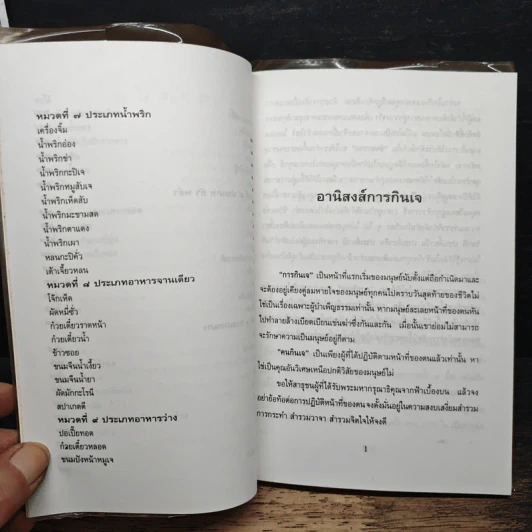 หมวดที่ ๗ ประเภทน้ำพริก
เครื่องจิ้ม
น้ำพริกอ่อง
น้ำพริกข่า
น้ำพริกกะปิเจ
น้ำพริกหมูสับเจ
น้ำพริกเห็ดสับ
น้ำพริกมะขามสด
น้ำพริกตาแดง
น้ำพริกเผา
หลนกะปิคั่ว
เต้าเจี้ยวหลน
หมวดที่ ๘ ประเภทอาหารจานเดียว
โจ๊กเห็ด
ผัดหมี่ซั่ว
ก๋วยเตี๋ยวราดหน้า
ก๋วยเตี๋ยวน้ำ
ข้าวซอย
ขนมจีนน้ำเงี้ยว
ขนมจีนน้ำยา
ผัดมักกะโรนี
สปาเกตตี
หมวดที่ ๙ ประเภทอาหารว่าง
ปอเปี๊ยทอด
ก๋วยเตี๋ยวหลอด
ขนมปังหน้าหมูเจ
อานิสงส์การกินเจ
"การกินเจ" เป็นหน้าที่แรกเริ่มของมนุษย์นับตั้งแต่ถือกำเนิดมาและ
จะต้องอยู่เคียงคู่ลมหายใจของมนุษย์ทุกคนไปตราบวันสุดท้ายของชีวิตไม่
ใช่เป็นเรื่องเฉพาะผู้บำเพ็ญธรรมเท่านั้น หากมนุษย์ละเลยหน้าที่ของตนหัน
ไปทำลายล้างเบียดเบียนเข่นฆ่าซึ่งกันและกัน เมื่อนั้นเขาย่อมไม่สามารถ
จะรักษาความเป็นมนุษย์อยู่ก็ตาม
"คนกินเจ" เป็นเพียงผู้ที่ได้ปฏิบัติตามหน้าที่ของตนแล้วเท่านั้น หา
ใช่เป็นคุณอันวิเศษเหนือปกติวิสัยของมนุษย์ไม่
ขอให้สาธุชนผู้ที่ได้รับพระมหากรุณาธิคุณจากฟ้าเบื้องบน แล้วจง
อย่าย่อท้อต่อการปฏิบัติหน้าที่ของตนจงตั้งมั่นอยู่ในความสงบเสงี่ยมสำรวม
การกระทำ สำรวมวาจา สำรวมจิตใจให้จงดี
1